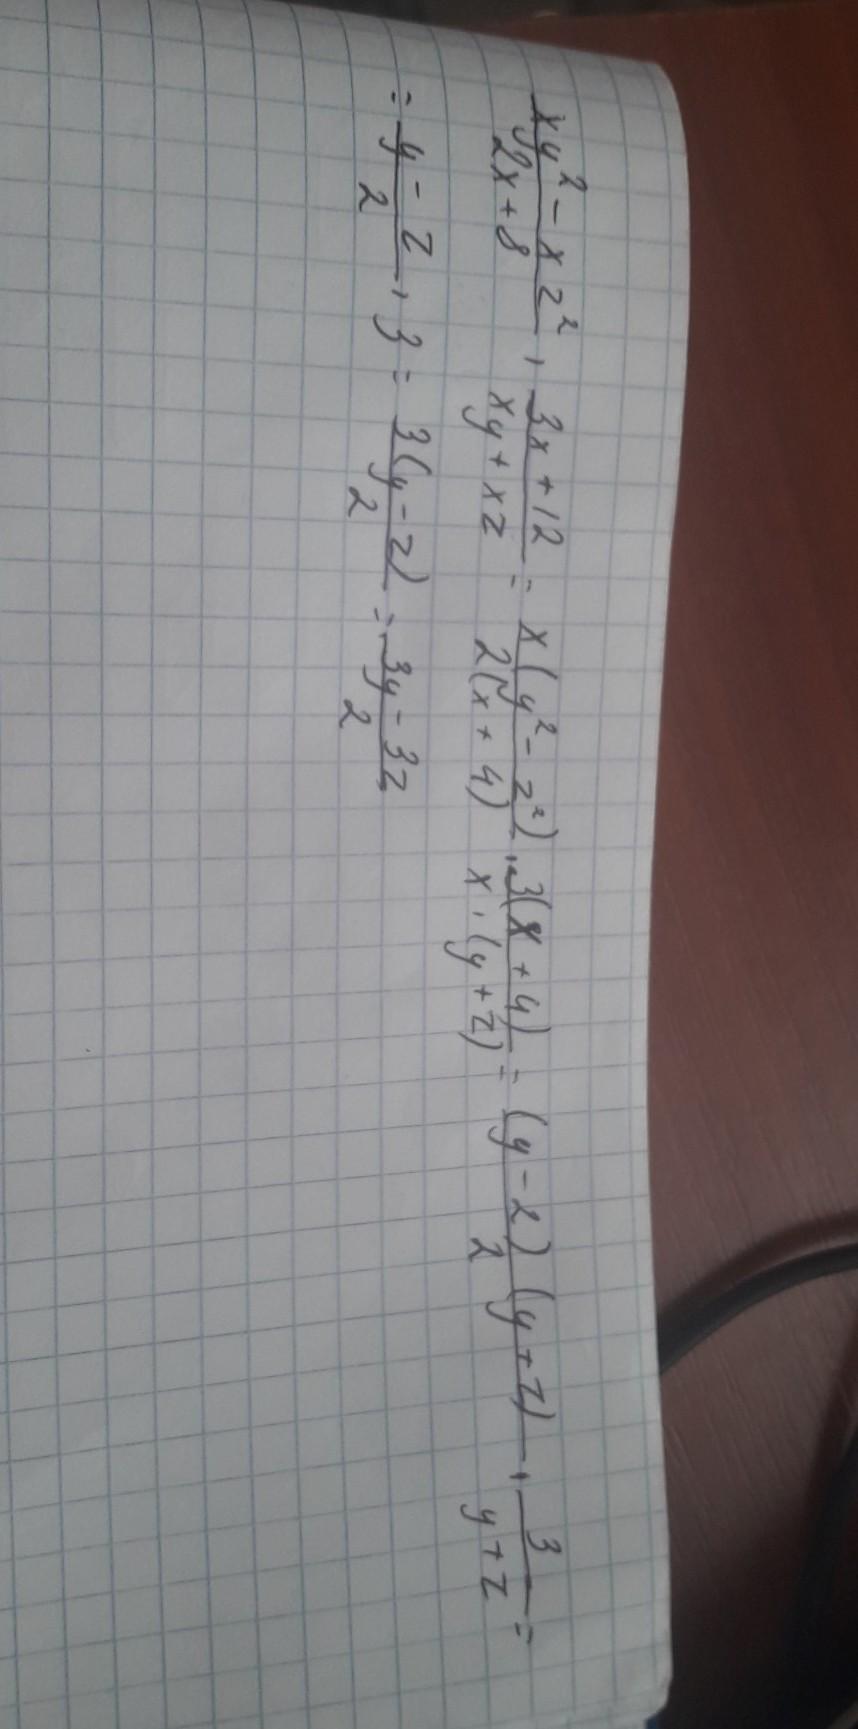 \frac{xy^2 - xz^2}{2x + 8} \cdot \frac{3x + 12}{xy + xz} = \frac{x(y^2 - z^2)}{2(x + 4)} \cdot \frac{3(x + 4)}{x \cdot (y + z)} = \frac{(y - z)(y + z)}{2} \cdot \frac{3}{y + z} =
= \frac{y - z}{2} \cdot 3 = \frac{3(y - z)}{2} = \frac{3y - 3z}{2}